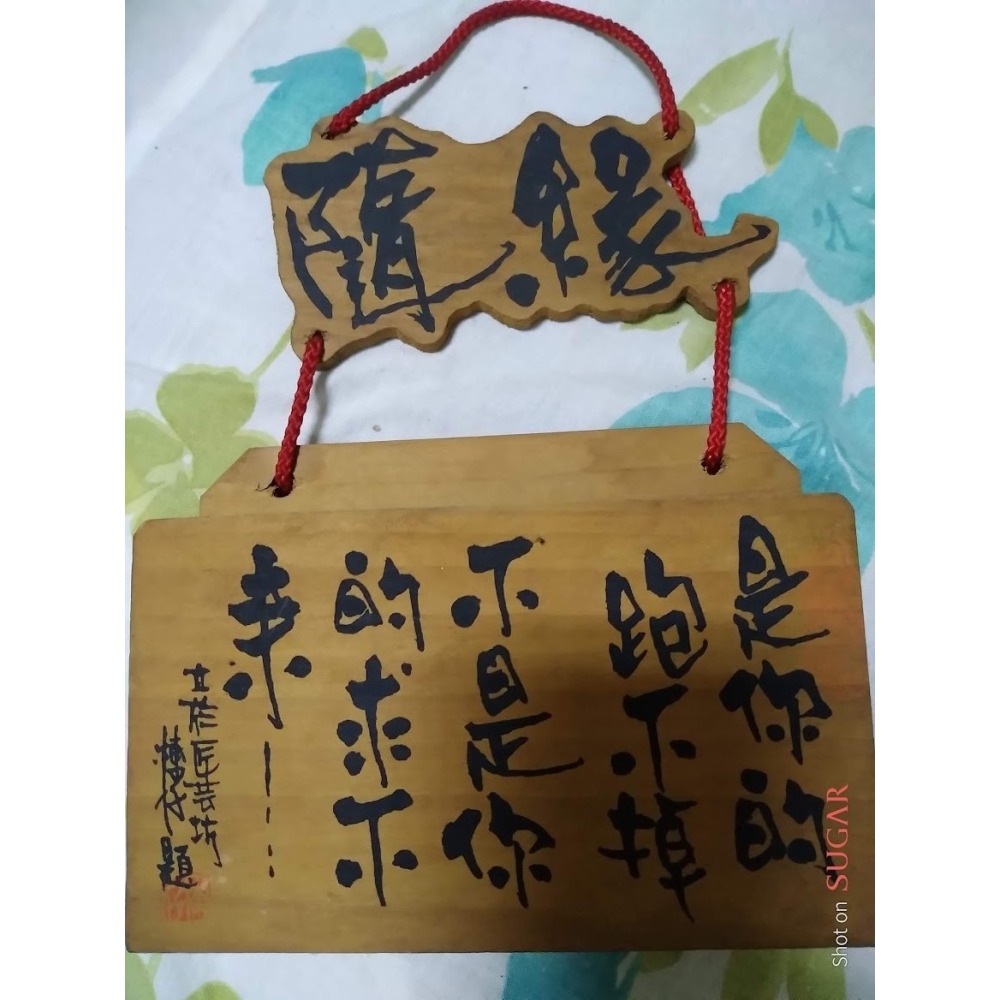 隨緣
是你的
跑不掉
不是你
的求不
來……
匠芸坊
題
Shot on SUGAR